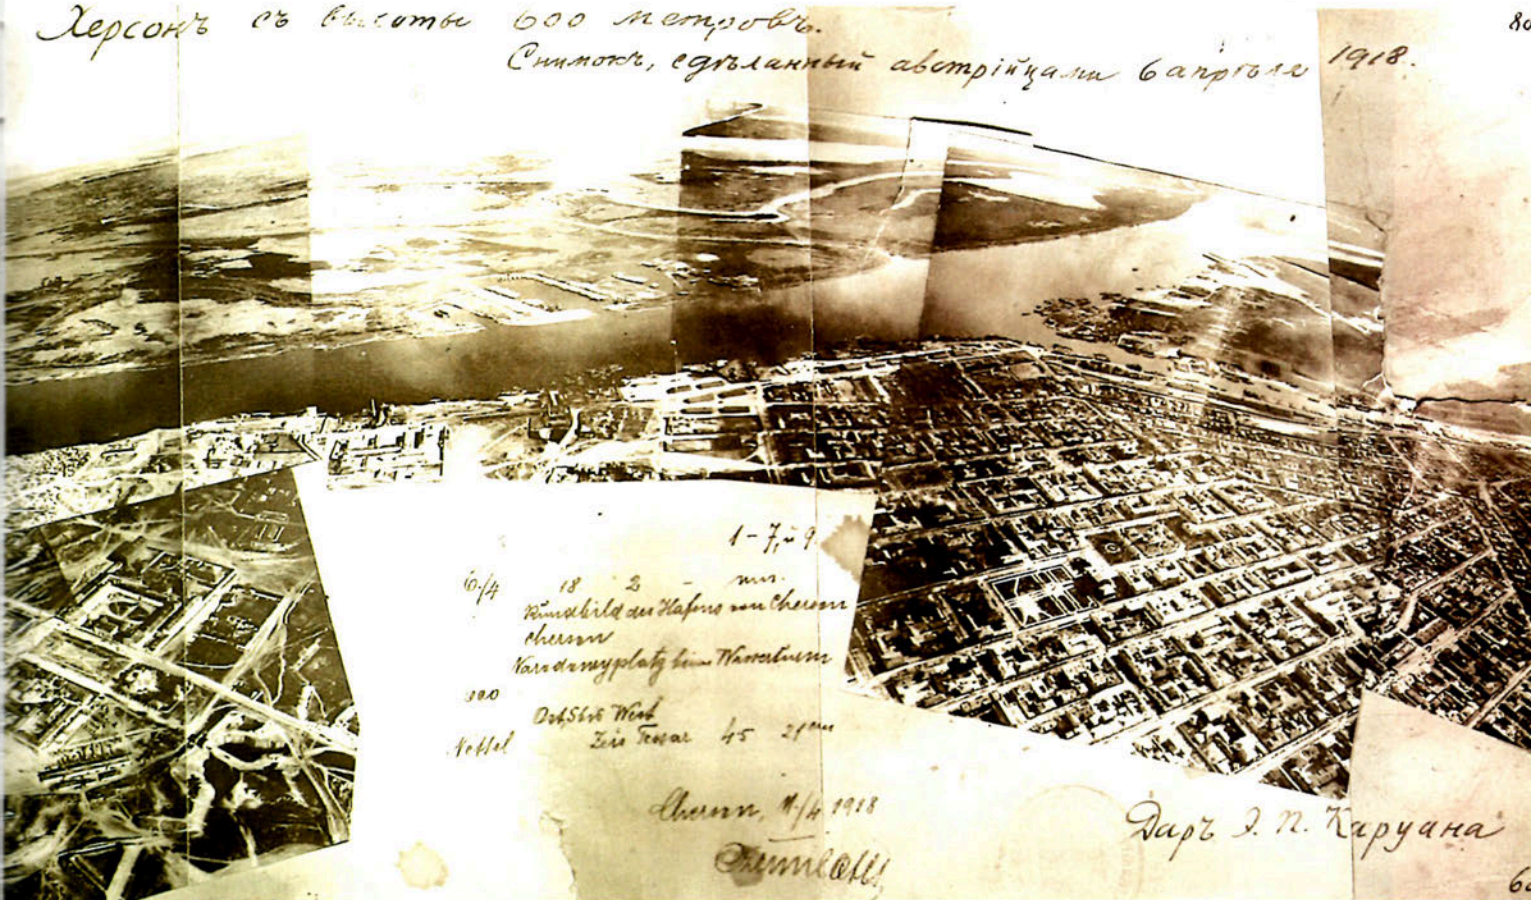 Херсонъ съ высоты 600 метровъ.
80
Снимокъ, сдѣланный австрійцами 6 апрѣля 1918.
1-7, u 9
6./4 18 2 -
Rundbild des Hafens von Cherson
Cherson
beim Wasserturm
Ost bis West
Nettel Zeiss Tessar 45 21 cm
Cherson, 11/4 1918
Даръ Э. П. Каруана